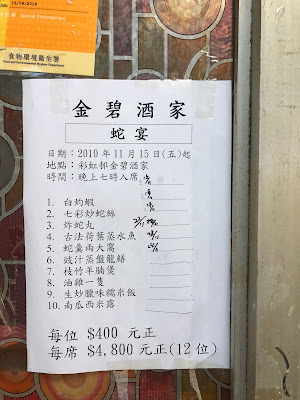 13/08/2019
食物環境衞生署
Food and Environmental Hygiene Department
金碧酒家
蛇宴
日期：2019年11月15日(五)起
地點：彩虹邨金碧酒家
時間：晚上七時入席
1. 白灼蝦
2. 七彩炒蛇絲
3. 炸蛇丸
4. 古法荷葉蒸水魚
5. 蛇羹兩大窩
6. 豉汁蒸盤龍鱔
7. 枝竹羊腩煲
8. 油雞一隻
9. 生炒臘味糯米飯
10. 南瓜西米露
每位 $400 元正
每席 $4,800 元正(12位)